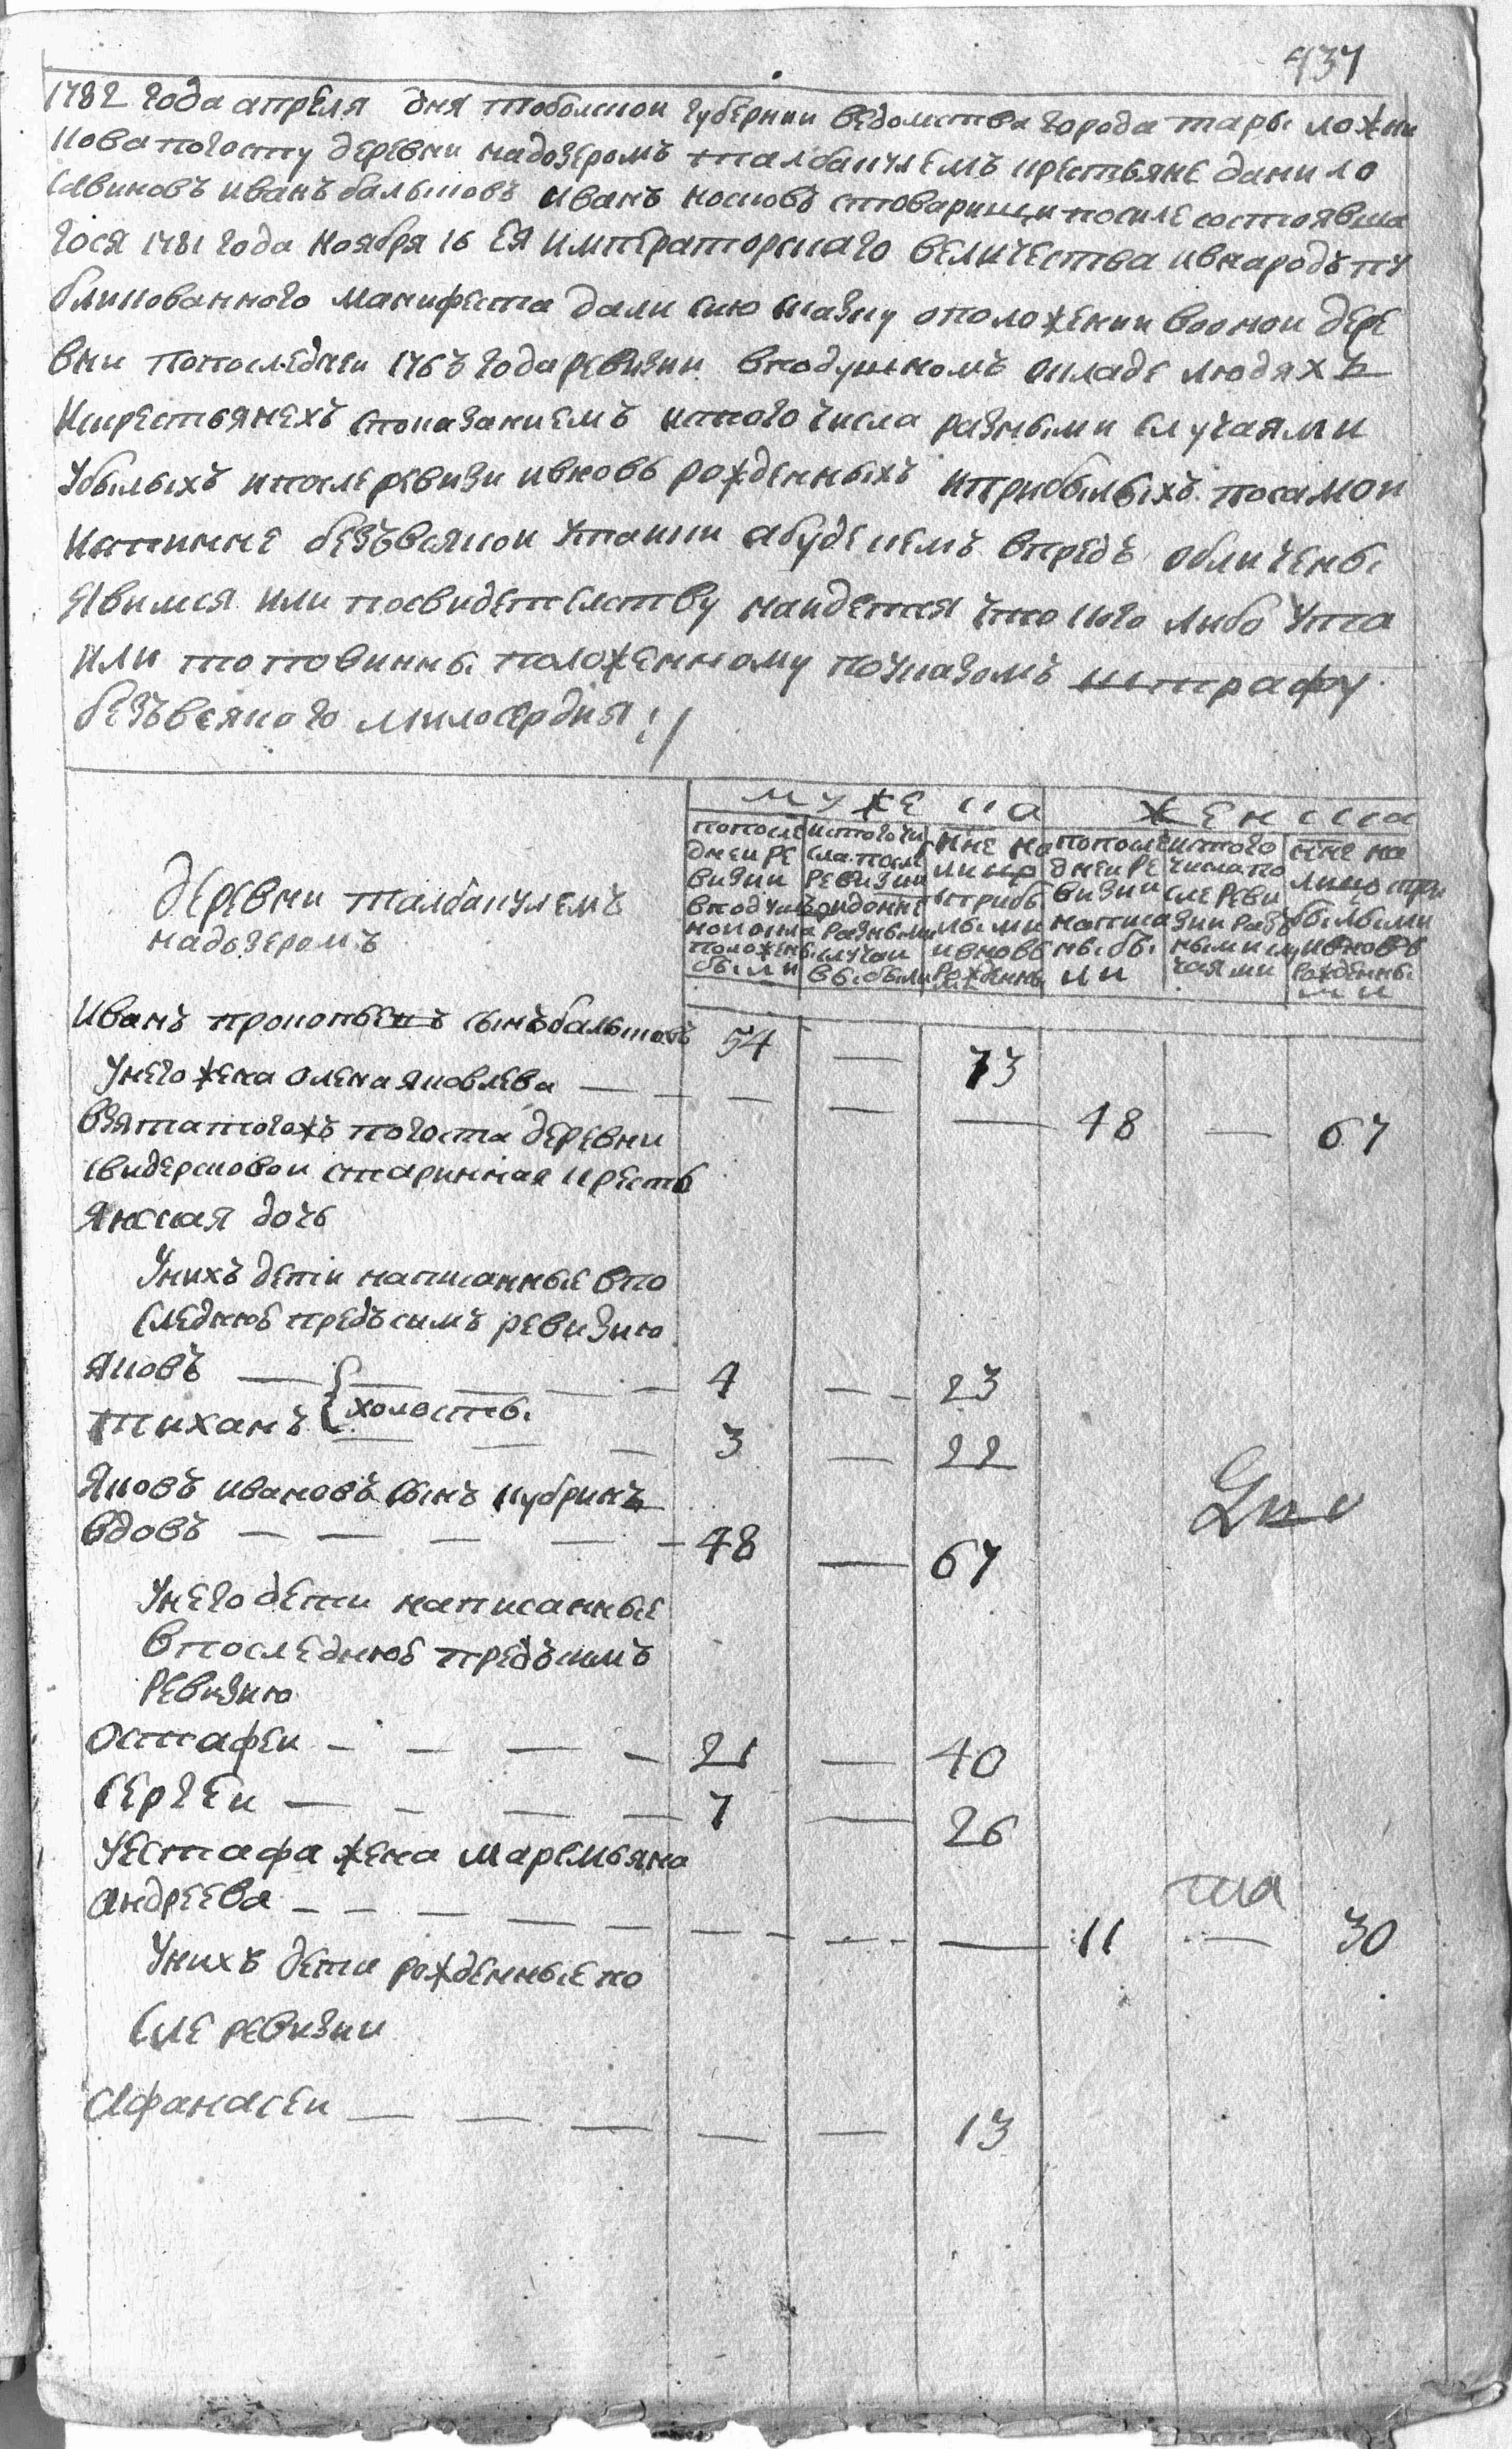 437
1782 года апреля дня тоболской губернии ведомства города тары ложни
кова погосту деревни надозеромъ талбакулемъ крестьяне данило
савиновъ иванъ балшовъ иванъ носковъ стоварищи посиле состоявша
гося 1781 года ноября 16 ея императорскаго величества ивнародъ пу
бликованного манифеста дали сию скаску оположении воонои дере
вни попоследнеи 1763 года ревизии вподушномъ окладе людяхъ
икрестьянехъ споказаниемъ истого числа разными случаями
убылыхъ ипосле ревизи ивновь рожденныхъ иприбылыхъ посамои
истинне безъвсякои утаики абуде чемъ впредь обличены
явимся или посвидетелству наидется что кого либо ута
или то повинны положенному поуказомъ штрафу
безъвсякого милосердия

мужеска женска
деревни талбакулемъ
надозеромъ
попосле дней ре визии вподуш ной окла положены были
истого чи сла после ревизии разными случаи выбыли
ныне на лицо иприбы лыми ивновь рожденны ми
попосле дней ре визии написа ны бы ли
истого числа по сле реви зии раз ными слу чаями
ныне на лицо при былыми ивновь рожденны ми
иванъ прокопьевъ сынъ балшовъ 54 — 73
унего жена олена яковлева — — — — — 48 — 67
взята тогожъ погоста деревни
свидерсковой старинная кресть
янская дочь
унихъ дети написанные впо
следнюю предъ симъ ревизию
яковъ — { — — — — 4 — — 23
тиханъ { холосты — — — 3 — 22
яковъ ивановъ сынъ кубринъ
вдовъ — — — — — 48 — 67
унего дети написанные
впоследнюю предъ симъ
ревизию
остафеи — — — — 21 — 40
сергеи — — — — 7 — 26
уестафа жена маремьяна
андреева — — — — — — — — — 11 — 30
унихъ дети рожденные по
сле ревизии
афанасеи — — — — — 13